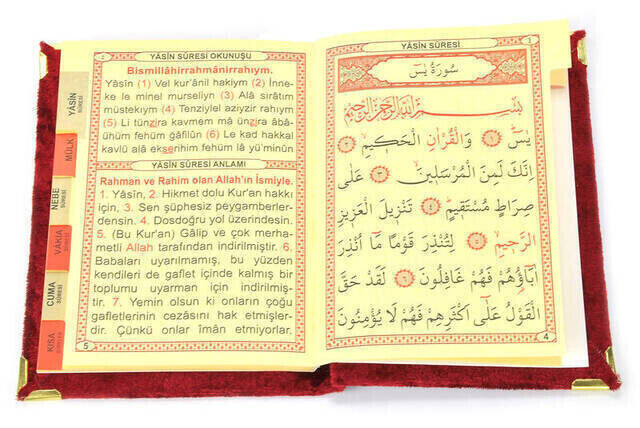 YÂSÎN SÛRESİ OKUNUŞU
Bismillâhirrahmânirrahıym.
Yâsîn (1) Vel kur'ânil hakiym (2) İnne-
ke le minel murseliyn (3) Alâ sirâtım
müstekıym (4) Tenziylel aziyzir rahıym
(5) Li tünzira kavmem mâ ünzira âbâ-
ühüm fehüm ğâfilûn (6) Le kad hakkal
kavlü alâ ekserihim fehüm lâ yü'minûn
YÂSÎN SÛRESİ ANLAMI
Rahman ve Rahim olan Allah'ın İsmiyle.
1. Yâsîn, 2. Hikmet dolu Kur'an hakkı
için, 3. Sen şüphesiz peygamberler-
densin. 4. Dosdoğru yol üzerindesin.
5. (Bu Kur'an) Gâlip ve çok merha-
metli Allah tarafından indirilmiştir. 6.
Babaları uyarılmamış, bu yüzden
kendileri de gaflet içinde kalmış bir
toplumu uyarman için indirilmiş-
tir. 7. Yemin olsun ki onların çoğu
gafletlerinin cezasını hak etmişler-
dir. Çünkü onlar îmân etmiyorlar.
5
YÂSÎN
SÛRESİ
MÜLK
SÛRESİ
NEBE
SÛRESİ
VAKIA
SÛRESİ
CUMA
SÛRESİ
KISA
SÛRELER
YÂSÎN SÛRESİ
سُورَةُ يٰسٓ
بِسْمِ اللهِ الرَّحْمٰنِ الرَّحِيمِ
يٰسٓ ﴿١﴾ وَالْقُرْاٰنِ الْحَكِيمِ ﴿٢﴾
اِنَّكَ لَمِنَ الْمُرْسَلِينَ ﴿٣﴾ عَلٰى
صِرَاطٍ مُسْتَقِيمٍ ﴿٤﴾ تَنْزِيلَ الْعَزِيزِ
الرَّحِيمِ ﴿٥﴾ لِتُنْذِرَ قَوْمًا مَٓا اُنْذِرَ
اٰبَٓاؤُهُمْ فَهُمْ غَافِلُونَ ﴿٦﴾ لَقَدْ حَقَّ
الْقَوْلُ عَلٰٓى اَكْثَرِهِمْ فَهُمْ لَا يُؤْمِنُونَ
4